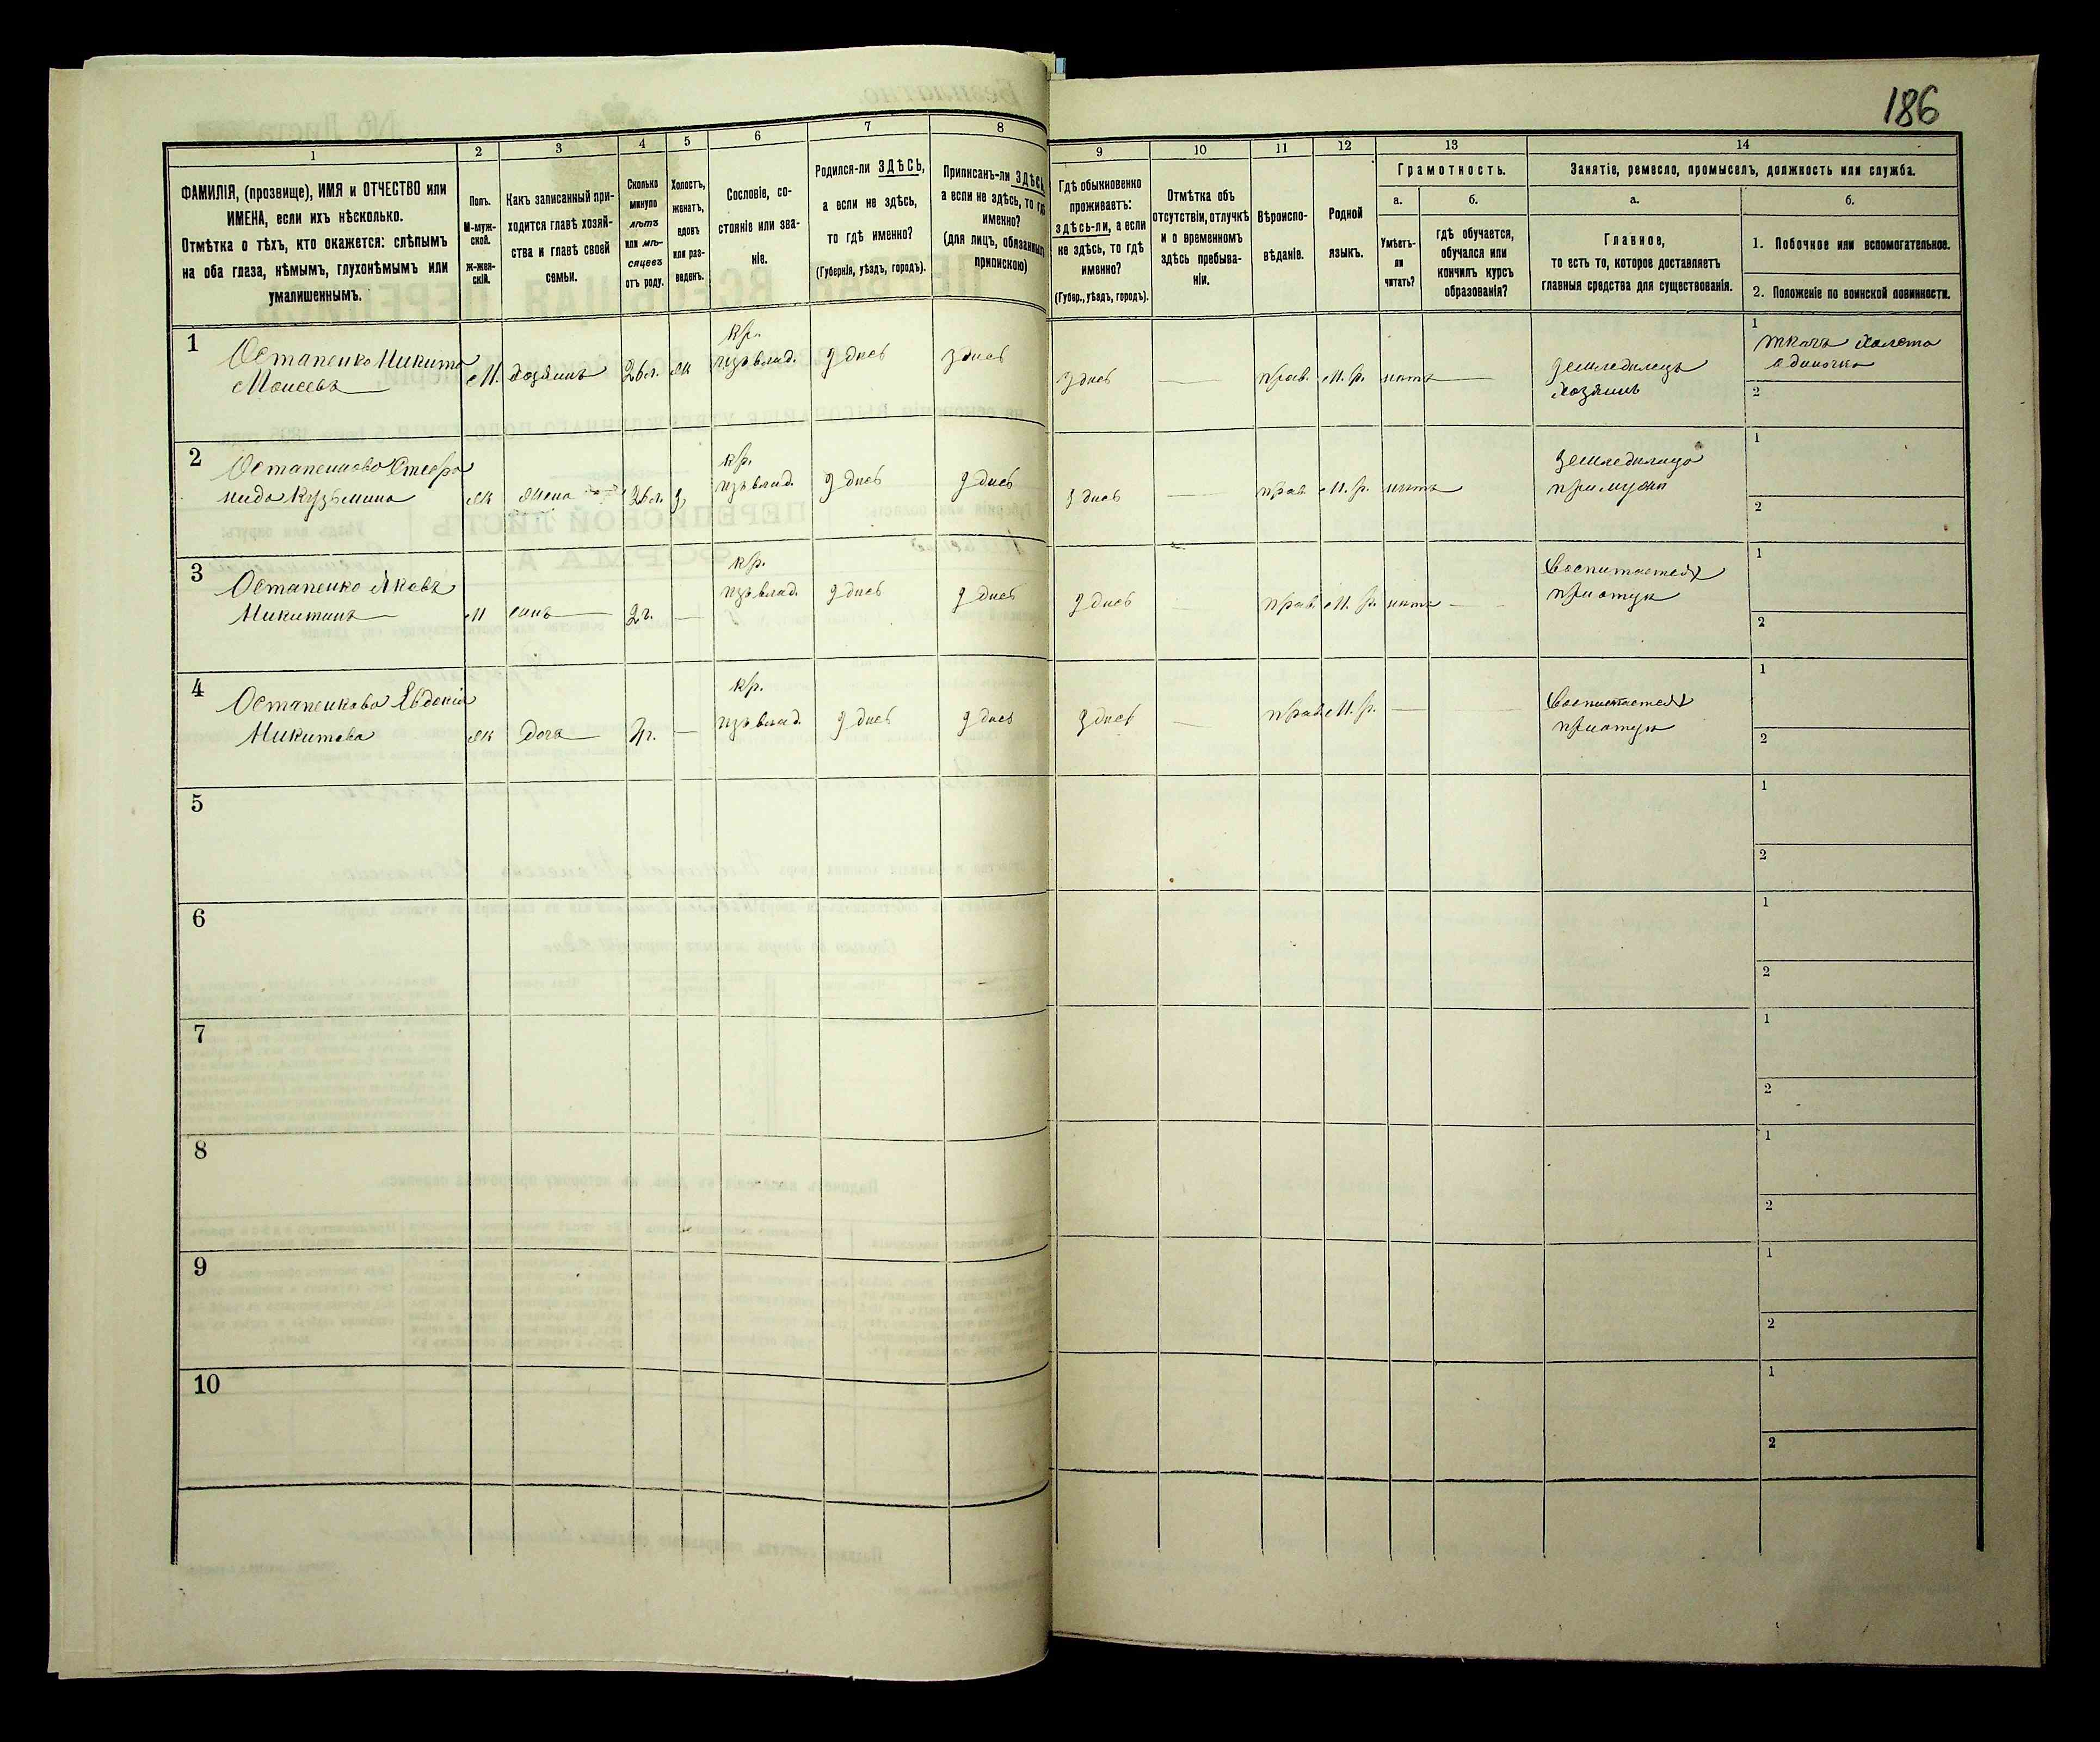 186
1
2
3
4
5
6
7
8
9
10
11
12
13
14
ФАМИЛІЯ, (прозвище), ИМЯ и ОТЧЕСТВО или
ИМЕНА, если ихъ нѣсколько.
Отмѣтка о тѣхъ, кто окажется: слѣпымъ
на оба глаза, нѣмымъ, глухонѣмымъ или
умалишеннымъ.
Полъ.
М-муж-
ской.
ж-жен-
скій.
Какъ записанный при-
ходится главѣ хозяй-
ства и главѣ своей
семьи.
Сколько
минуло
лѣтъ
или мѣ-
сяцевъ
отъ роду.
Холостъ,
женатъ,
вдовъ
или раз-
веденъ.
Сословіе, со-
стояніе или зва-
ніе.
Родился-ли ЗДѢСЬ,
а если не здѣсь,
то гдѣ именно?
(Губернія, уѣздъ, городъ).
Приписанъ-ли ЗДѢСЬ,
а если не здѣсь, то гдѣ
именно?
(для лицъ, обязанныхъ
припискою)
Гдѣ обыкновенно
проживаетъ:
здѣсь-ли, а если
не здѣсь, то гдѣ
именно?
(Губер., уѣздъ, городъ).
Отмѣтка объ
отсутствіи, отлучкѣ
и о временномъ
здѣсь пребыва-
ніи.
Вѣроиспо-
вѣданіе.
Родной
языкъ.
Грамотность.
а.
Умѣетъ-
ли
читать?
б.
гдѣ обучается,
обучался или
кончилъ курсъ
образованія?
Занятіе, ремесло, промыселъ, должность или служба.
а.
Главное,
то есть то, которое доставляетъ
главныя средства для существованія.
б.
1. Побочное или вспомогательное.
2. Положеніе по воинской повинности.
1
Остапенко Никита
Моисеевъ
М.
хозяинъ
26 л.
ж
кр.
изъ влад.
здесь
здесь
здесь
прав.
М. р.
нетъ
земледелецъ
хозяинъ
1
ткачь холста
одиночка
2
2
Остапенкова
Кузьмина
ж
жена
26 л.
з
кр.
изъ влад.
здесь
здесь
здесь
прав.
М. р.
нетъ
при мужи
1
2
3
Остапенко Яковъ
Никитинъ
М
сынъ
2 г.
кр.
изъ влад.
здесь
здесь
здесь
прав.
М. р.
нетъ
при отцу
1
2
4
Остапенкова Евдокія
Никитова
ж
доча
кр.
изъ влад.
здесь
здесь
здесь
прав.
М. р.
при отцу
1
2
5
1
2
6
1
2
7
1
2
8
1
2
9
1
2
10
1
2